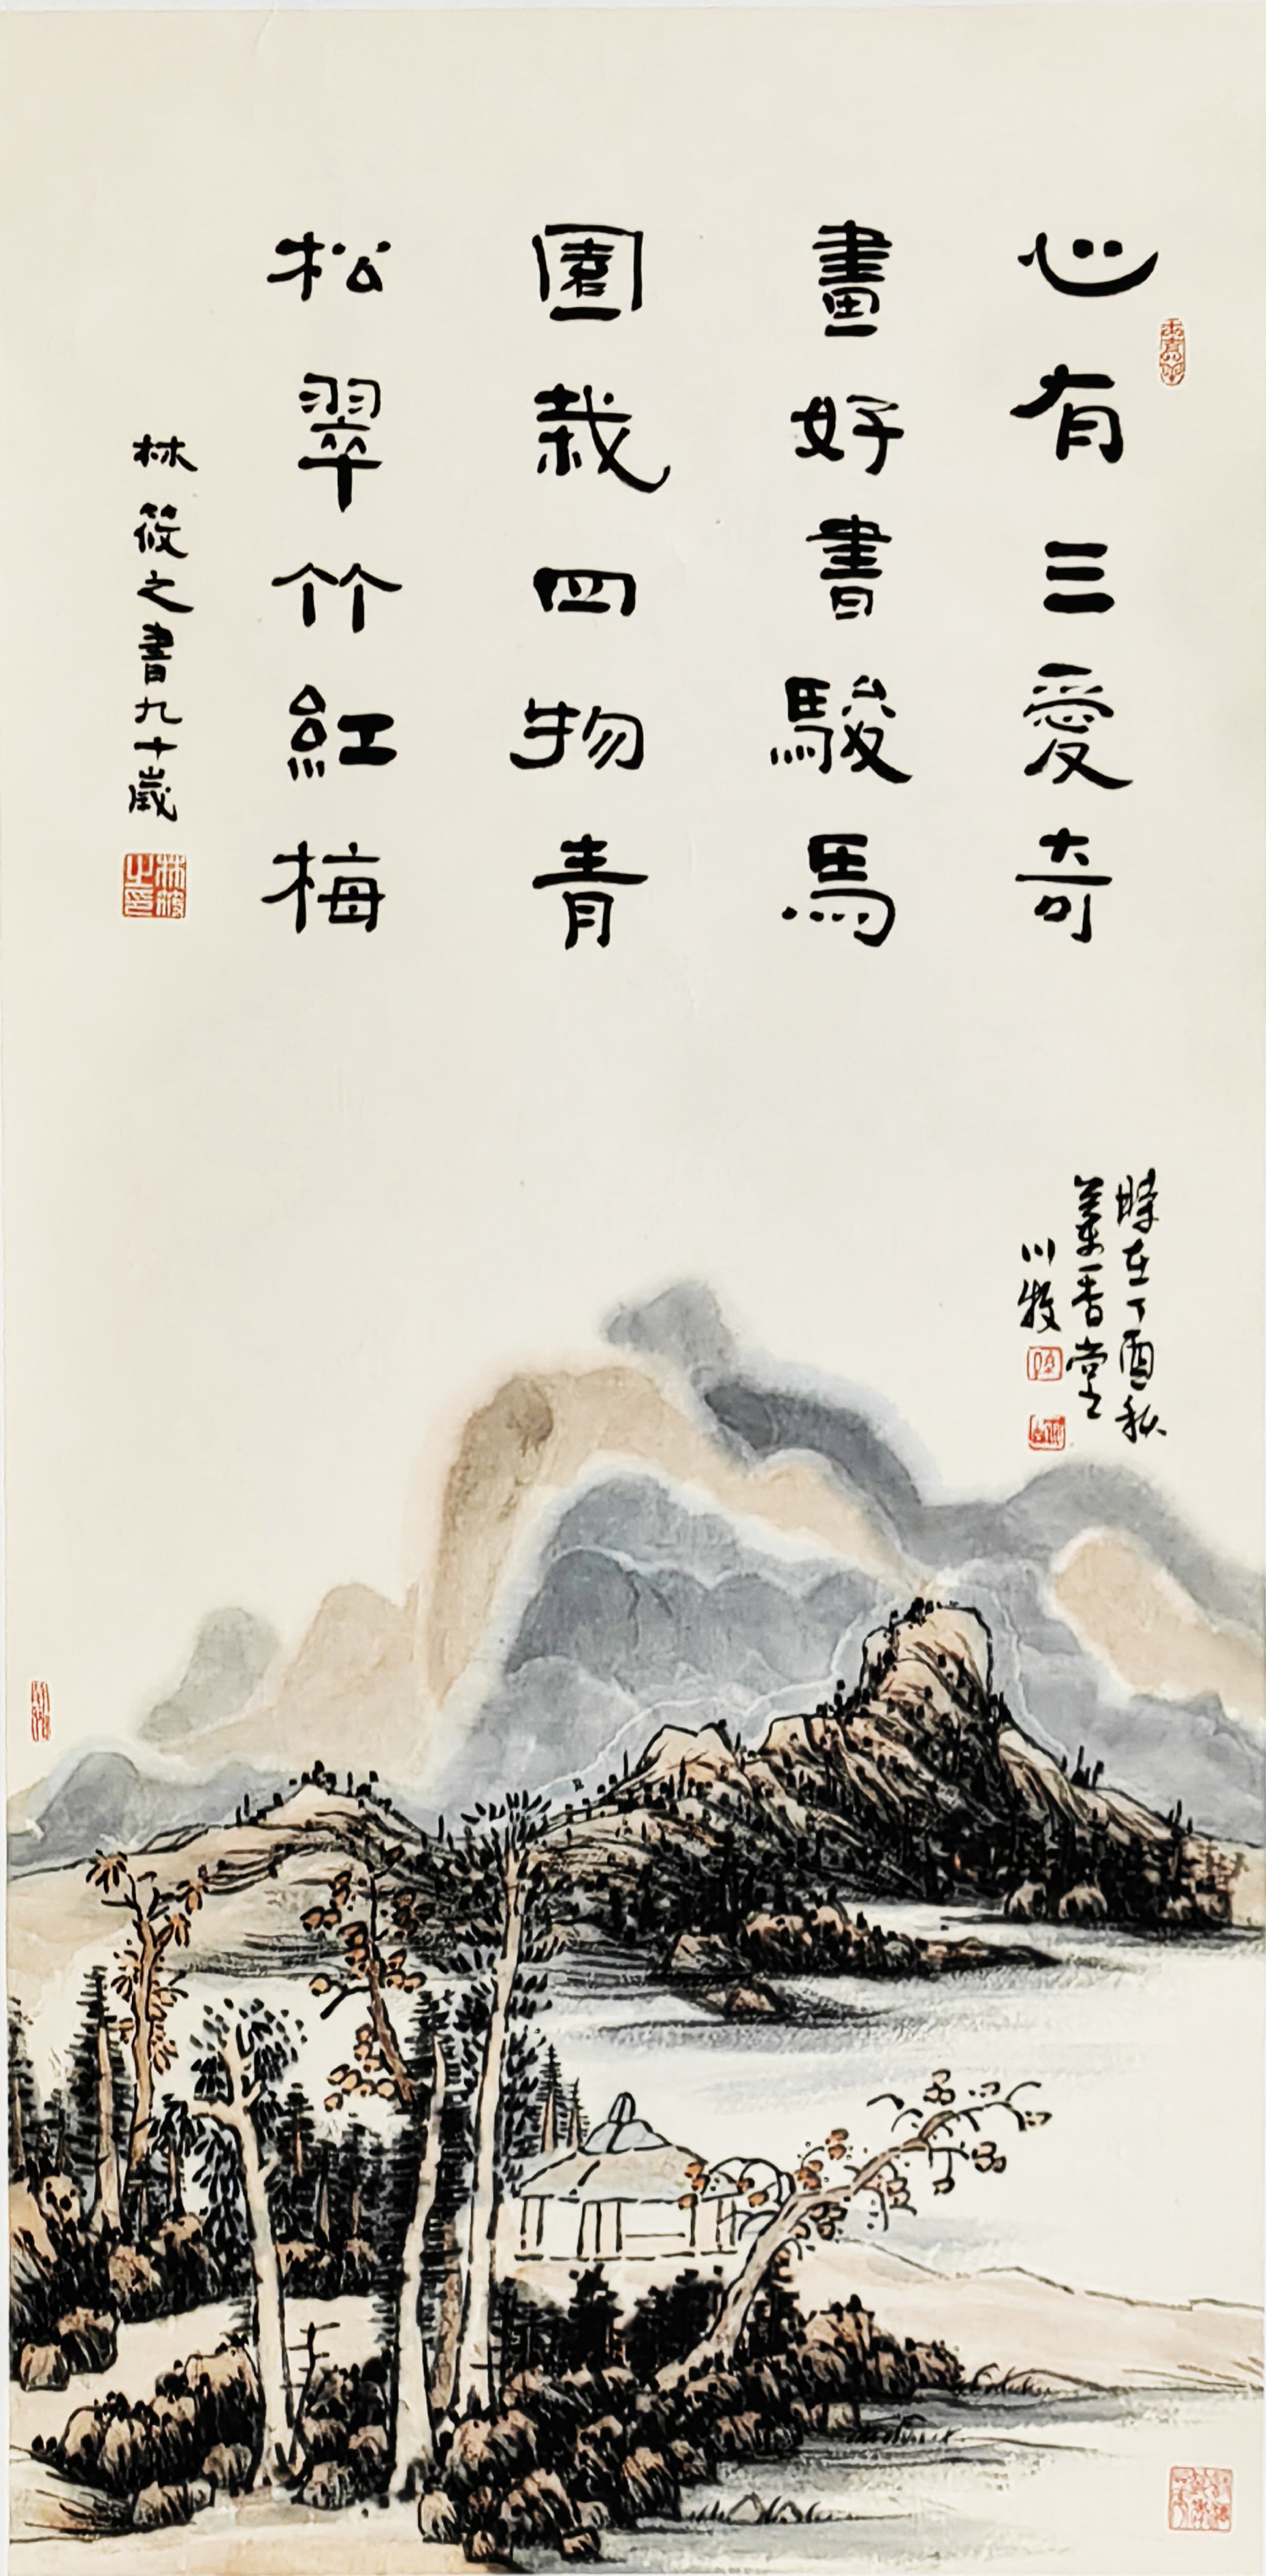 心有三愛奇
畫好書駿馬
園栽四物青
松翠竹紅梅
林筱之書九十歲
時在丁酉秋
萬香堂
川牧